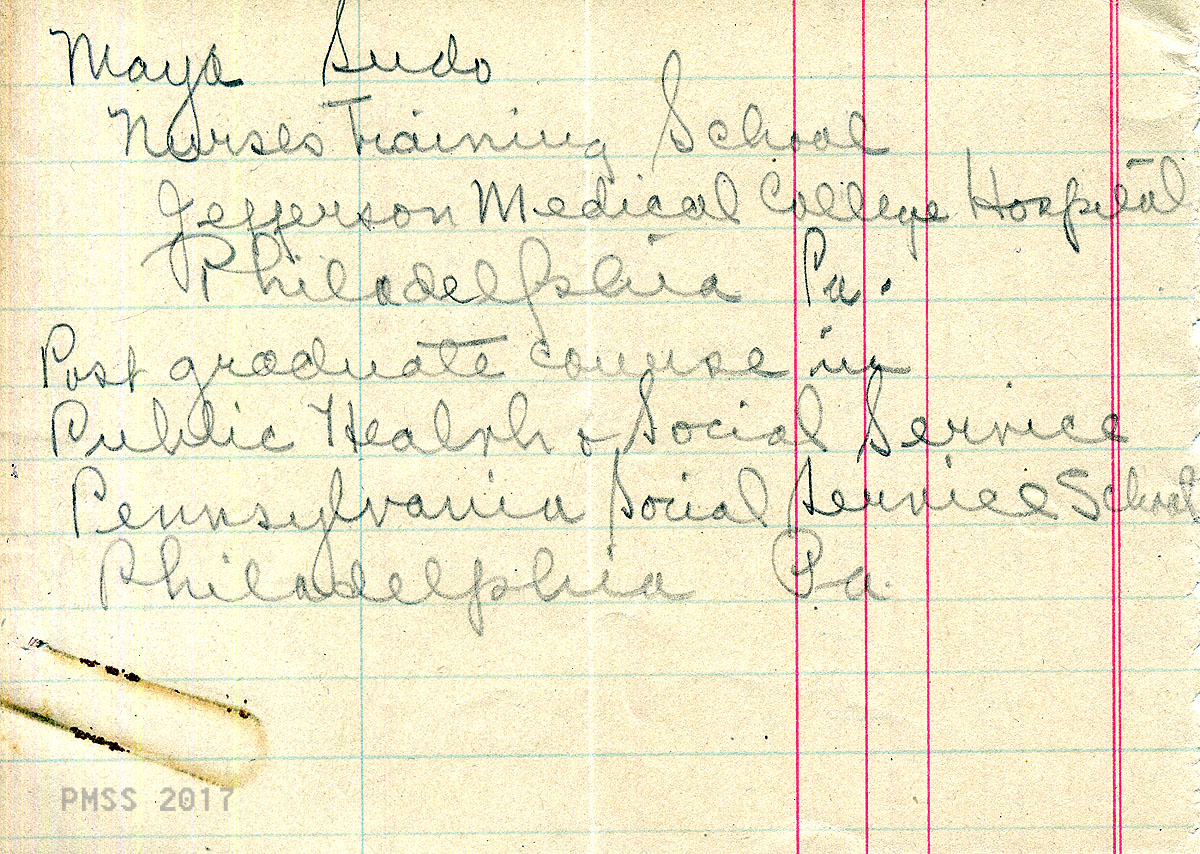 Maya Sudo
Nurses Training School
Jefferson Medical College Hospital
Philadelphia Pa.
Post graduate course in
Public Health & Social Service
Pennsylvania Social Service School
Philadelphia Pa.
PMSS 2017